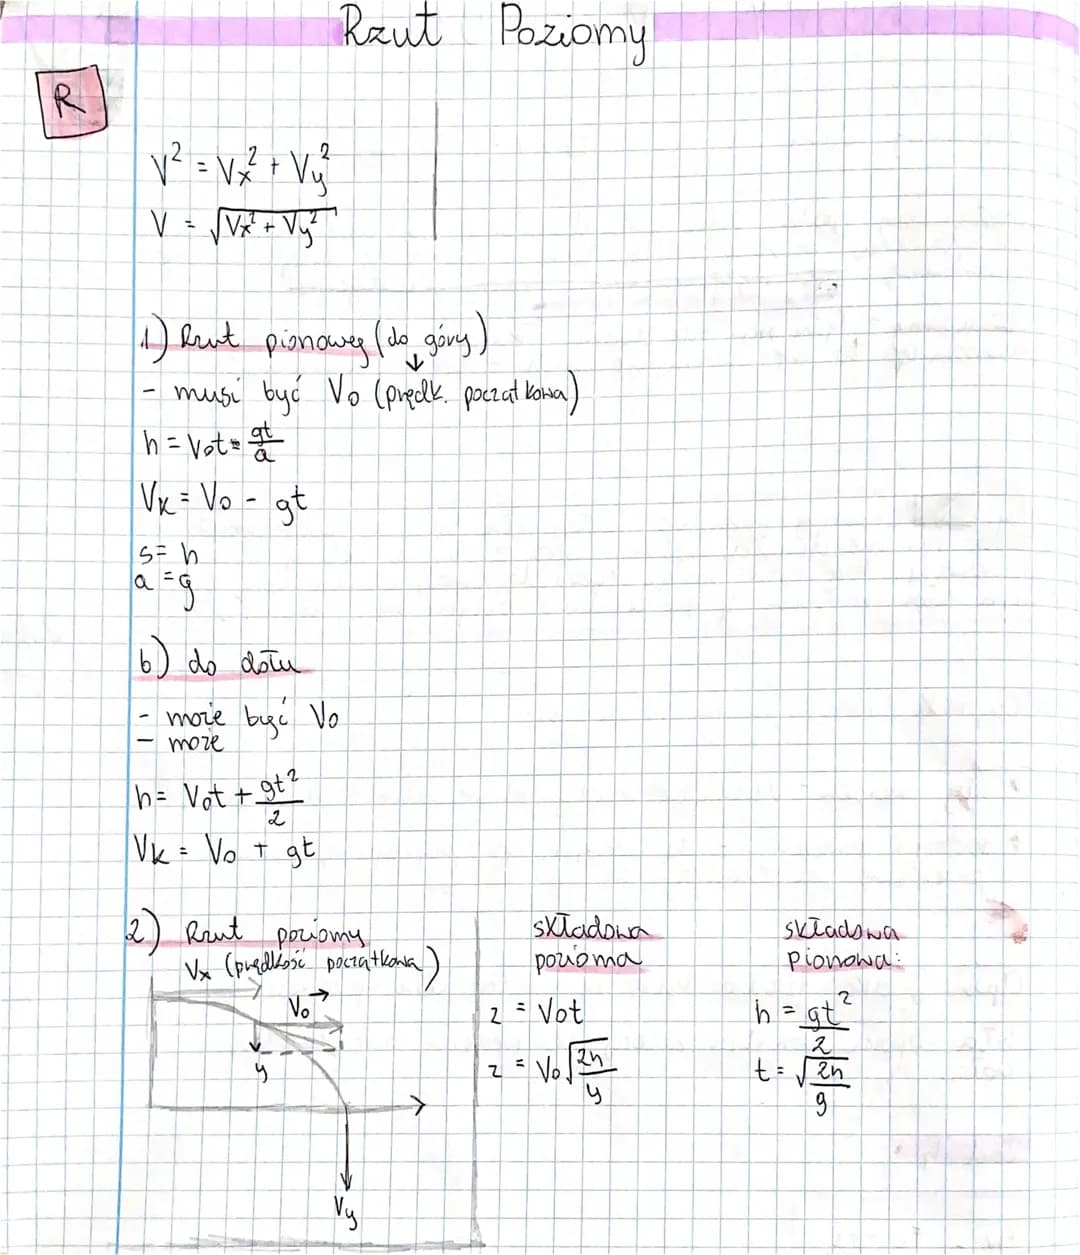 Rzut Poziomy
R
V² = Vx² + Vy²
V = √Vx² + Vy²
1) Rzut pionowy (do góry)
- musi być Vo (prędk. początkowa)
h = Vot = gt/a
Vk = Vo - gt
s = h
a = g
b) do dołu
- może być Vo
- może
h = Vot + gt²/2
Vk = Vo + gt
2) Rzut poziomy
Vx (prędkość początkowa)
Vo
y
Vy
składowa
pozioma
z = Vot
z = Vo√2h/y
składowa
pionowa:
h = gt²/2
t = √2h/g